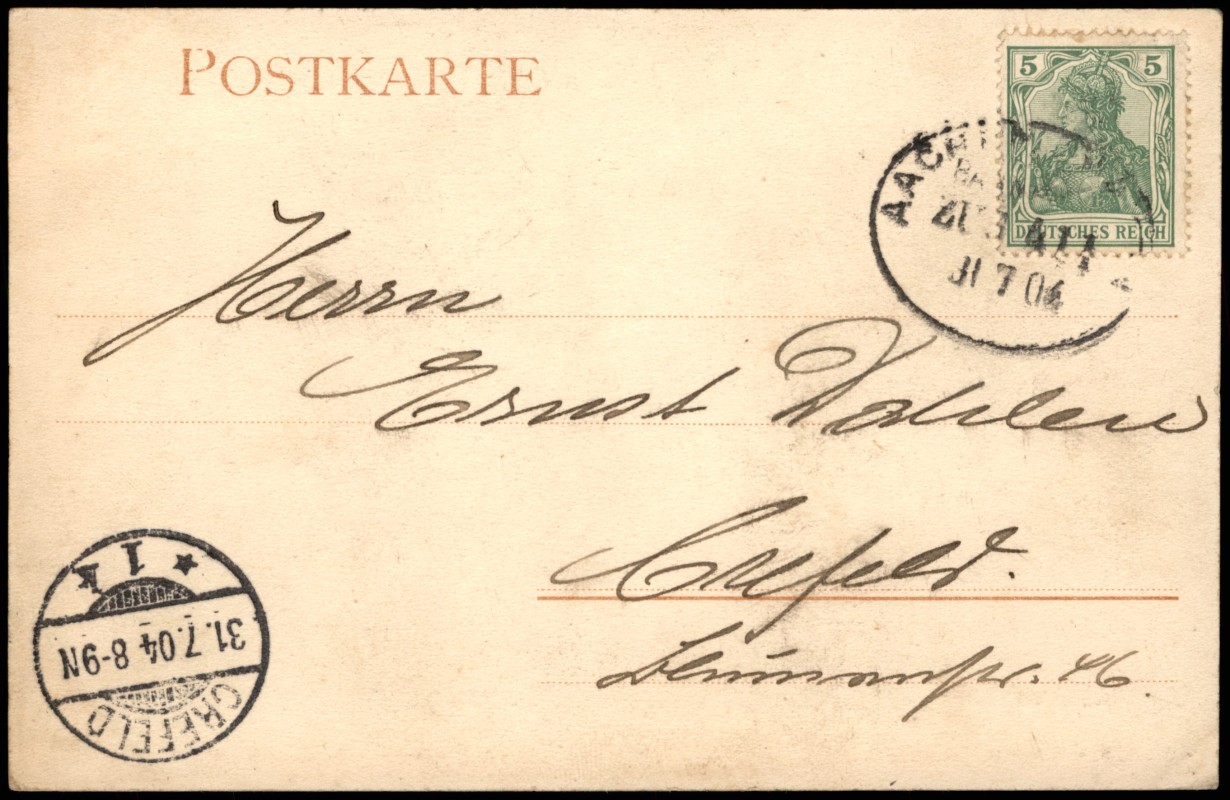 POSTKARTE
5 5
DEUTSCHES REICH
AACHEN
ZUG 411
31 7 04
Herrn
Ernst Dahlen
Crefeld.
Blumenstr. 46.
1 k
31.7.04 8-9N
CREFELD